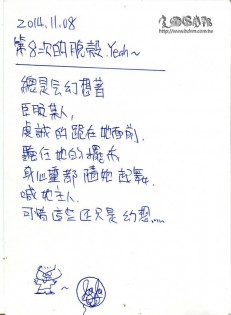 2014.11.08
http://www.bdsm.com.tw
第8次的脫殼.Yeah~
總是會幻想著
臣服某人,
虔誠的跪在她面前.
聽任她的擺布
身心靈都隨她起舞.
喊她主人.
可惜這些還只是幻想......
~